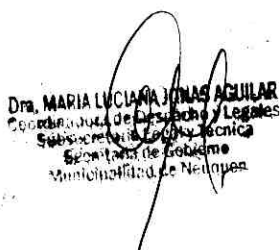 Dra. MARIA LUCIANA JONAS AGUILAR
Coordinadora de Despacho y Legales
Subsecretaría Legal y Técnica
Secretaría de Gobierno
Municipalidad de Neuquén